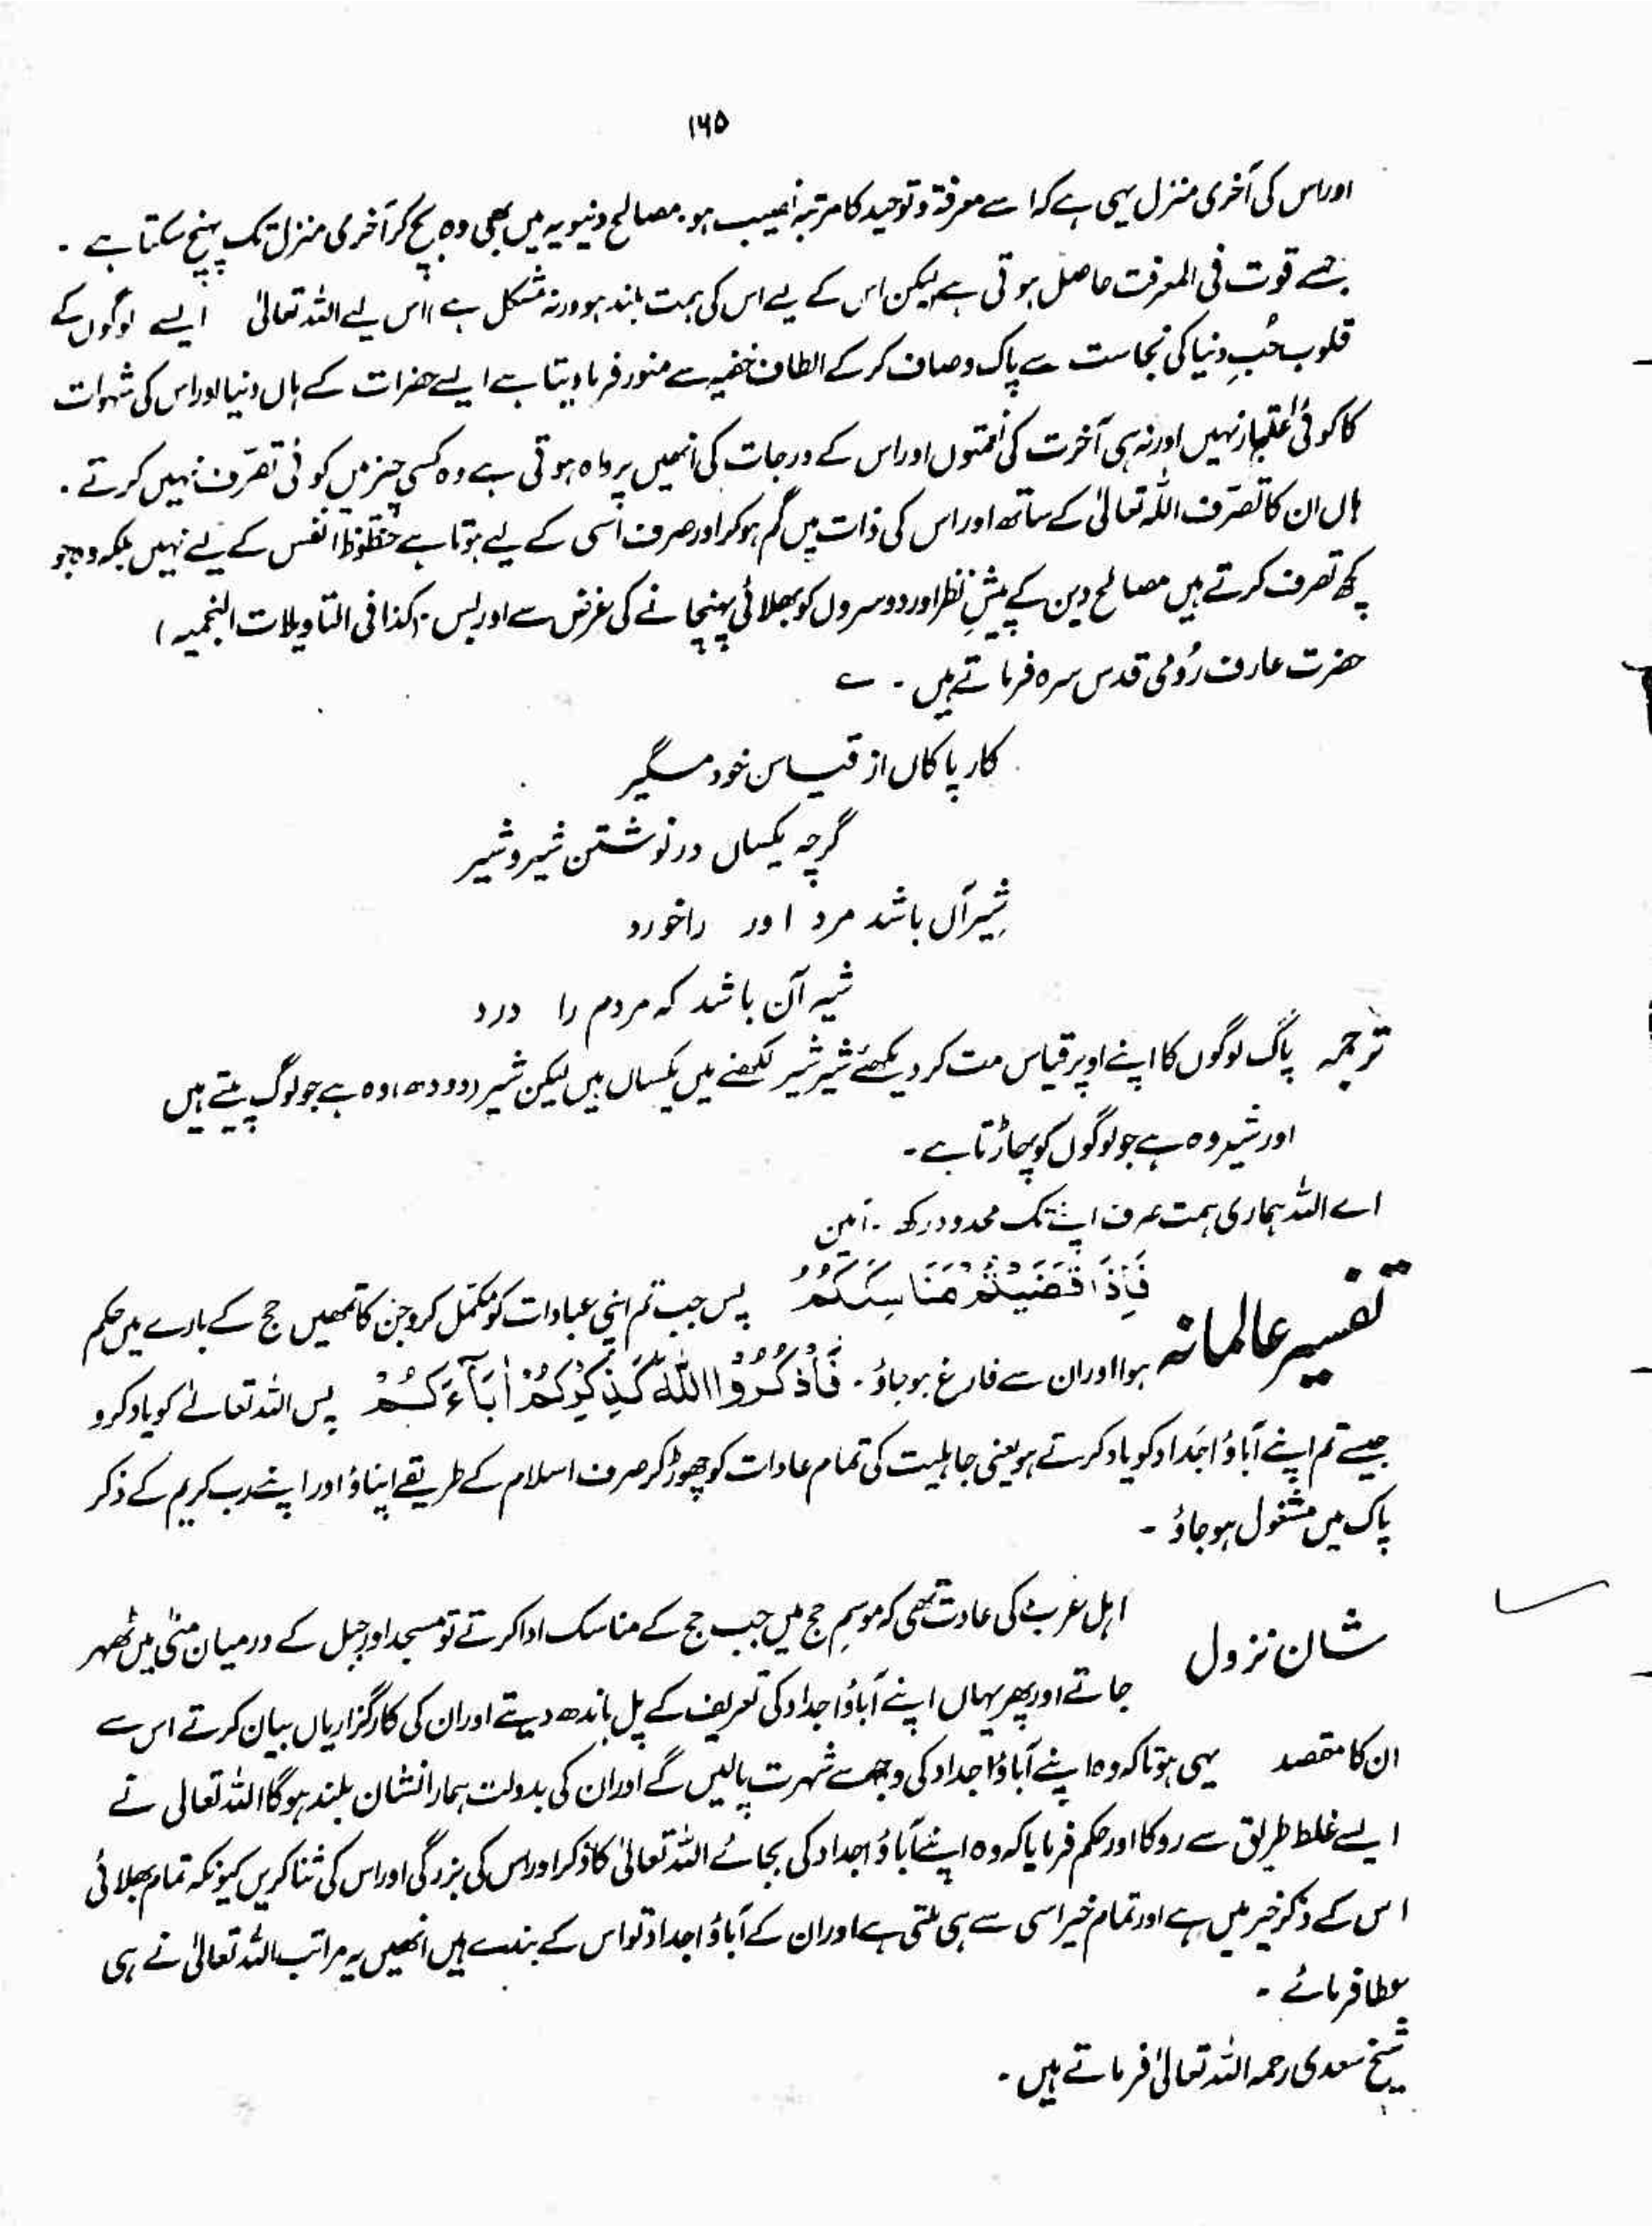 ۱۶۵
اوراس کی آخری منزل یہی ہے کہ اسے معرفۃ و توحید کا مرتبہ نصیب ہو. مصالح دنیویہ میں بھی وہ بچ کر آخری منزل تک پہنچ سکتا ہے ۔
جسے قوت فی المعرفت حاصل ہوتی ہے لیکن اس کے لیے اس کی ہمت بلند ہو ورنہ مشکل ہے ، اس لیے اللہ تعالیٰ ایسے لوگوں کے
قلوب حُبِ دنیا کی نجاست سے پاک و صاف کر کے الطاف خفیہ سے منور فرما دیتا ہے ایسے حضرات کے ہاں دنیا اور اس کی شہوات
کا کوئی اعتبار نہیں اور نہ ہی آخرت کی نعمتوں اور اس کے درجات کی انھیں پرواہ ہوتی ہے وہ کسی چیز میں کوئی تصرّف نہیں کرتے ۔
ہاں ان کا تصرّف اللہ تعالیٰ کے ساتھ اور اس کی ذات میں گم ہو کر اور صرف اسی کے لیے ہوتا ہے حظوظ نفس کے لیے نہیں بلکہ وہ جو
کچھ تصرف کرتے ہیں مصالح دین کے پیشِ نظر اور دوسروں کو بھلائی پہنچانے کی غرض سے اور بس (کذا فی التاویلات النجمیہ)
حضرت عارف رُومی قدس سرہ فرماتے ہیں ۔ ے
کار پاکاں از قیاس خود مگیر
گرچہ یکساں در نوشتن شیر و شیر
شِیر آں باشد مرد اور را خورد
شیر آن باشد کہ مردم را درد
ترجمہ پاک لوگوں کا اپنے اوپر قیاس مت کر دیکھئے شیر شیر لکھنے میں یکساں ہیں لیکن شیر (دودھ) وہ ہے جو لوگ پیتے ہیں
اور شیر وہ ہے جو لوگوں کو پھاڑتا ہے ۔
اے اللہ ہماری ہمت صرف اپنے تک محدود رکھ ۔ آمین
تفسیر عالمانہ فَاِذَا قَضَيْتُمْ مَّنَاسِكَكُمْ پس جب تم اپنی عبادات کو مکمّل کرو جن کا تمھیں حج کے بارے میں حکم
ہوا اور ان سے فارغ ہو جاؤ ۔ فَاذْكُرُوا اللّٰهَ كَذِكْرِكُمْ اٰبَآءَكُمْ پس اللہ تعالےٰ کو یاد کرو
جیسے تم اپنے آباؤ اجداد کو یاد کرتے ہو یعنی جاہلیت کی تمام عادات کو چھوڑ کر صرف اسلام کے طریقے اپناؤ اور اپنے رب کریم کے ذکر
پاک میں مشغول ہو جاؤ ۔
شان نزول اہل عرب کی عادت تھی کہ موسمِ حج میں جب حج کے مناسک ادا کرتے تو مسجد اور جبل کے درمیان منیٰ میں ٹھہر
جاتے اور پھر یہاں اپنے آباؤ اجداد کی تعریف کے پل باندھ دیتے اور ان کی کارگزاریاں بیان کرتے اس سے
ان کا مقصد یہی ہوتا کہ وہ اپنے آباؤ اجداد کی وجہ سے شہرت پالیں گے اور ان کی بدولت ہمارا نشان بلند ہوگا اللہ تعالی نے
ایسے غلط طریق سے روکا اور حکم فرمایا کہ وہ اپنے آباؤ اجداد کی بجائے اللہ تعالیٰ کا ذکر اور اس کی بزرگی اور اس کی ثنا کریں کیونکہ تمام بھلائی
اس کے ذکر خیر میں ہے اور تمام خیر اسی سے ہی ملتی ہے اور ان کے آباؤ اجداد تو اس کے بندے ہیں انھیں یہ مراتب اللہ تعالیٰ نے ہی
عطا فرمائے ۔
شیخ سعدی رحمہ اللہ تعالیٰ فرماتے ہیں ۔